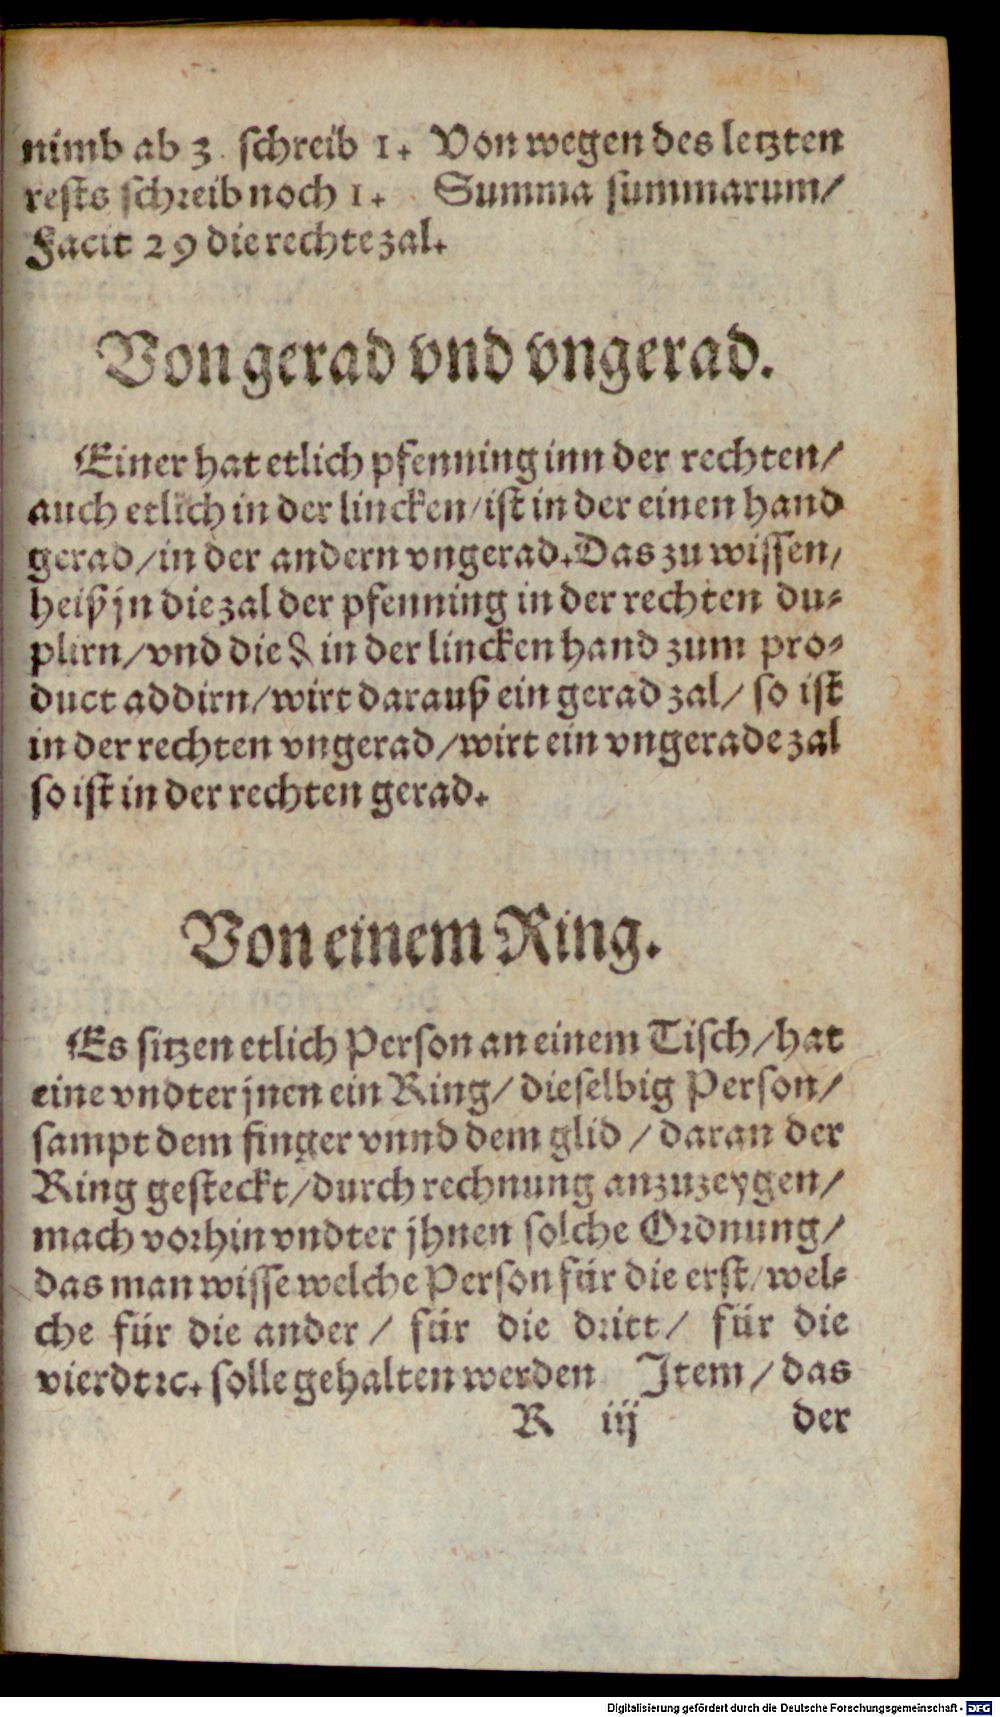 nimb ab 3. schreib 1. Von wegen des letzten
rests schreib noch 1. Summa summarum/
Facit 29 die rechte zal.
Von gerad vnd vngerad.
Einer hat etlich pfenning inn der rechten/
auch etlich in der lincken/ist in der einen hand
gerad/in der andern vngerad. Das zu wissen/
heiß jn die zal der pfenning in der rechten du-
plirn/vnd die ₰ in der lincken hand zum pro-
duct addirn/wirt darauß ein gerad zal/ so ist
in der rechten vngerad/wirt ein vngerade zal
so ist in der rechten gerad.
Von einem Ring.
Es sitzen etlich Person an einem Tisch/hat
eine vndter jnen ein Ring/ dieselbig Person/
sampt dem finger vnnd dem glid / daran der
Ring gesteckt/durch rechnung anzuzeygen/
mach vorhin vndter jhnen solche Ordnung/
das man wisse welche Person für die erst/wel-
che für die ander / für die dritt/ für die
vierdt ꝛc. solle gehalten werden Item/das
R iij der
Digitalisierung gefördert durch die Deutsche Forschungsgemeinschaft - DFG